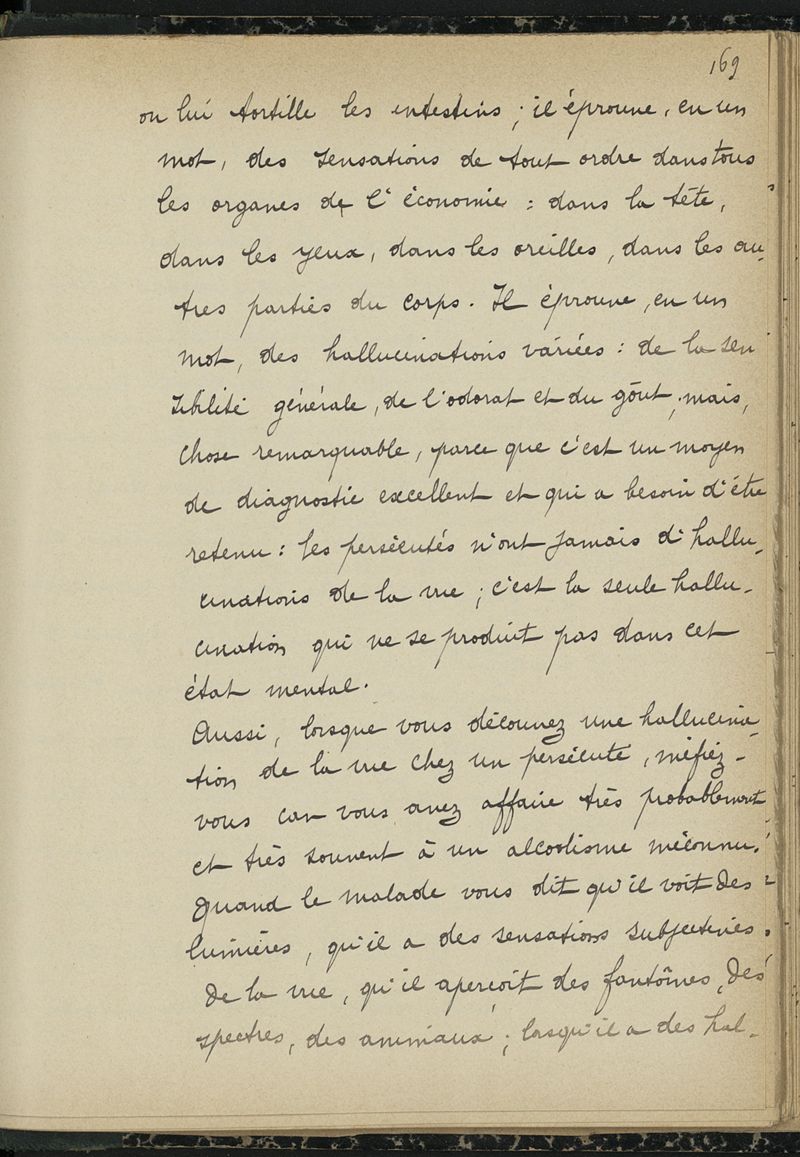 169
on lui tortille les intestins ; il éprouve, en un
mot, des sensations de tout ordre dans tous
les organes de l'économie : dans la tête,
dans les yeux, dans les oreilles, dans les au-
tres parties du corps. Il éprouve, en un
mot, des hallucinations variées : de la sen
sibilité générale, de l'odorat et du goût ; mais,
chose remarquable, parce que c'est un moyen
de diagnostic excellent et qui a besoin d'être
retenu : les persécutés n'ont jamais d'hallu-
cinations de la vue ; c'est la seule hallu-
cination qui ne se produit pas dans cet
état mental.
Aussi, lorsque vous découvrez une hallucina-
tion de la vue chez un persécuté, méfiez-
vous car vous avez affaire très probablement
et très souvent à un alcoolisme méconnu.
Quand le malade vous dit qu'il voit des
lumières, qu'il a des sensations subjectives
de la vue, qu'il aperçoit des fantômes, des
spectres, des animaux ; lorsqu'il a des hal-